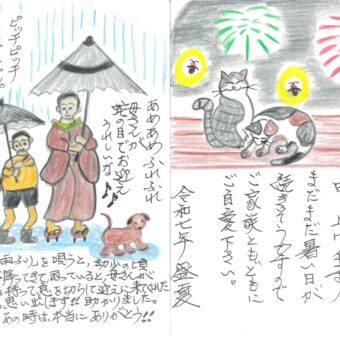 あめあめ ふれふれ
母さんが
蛇の目でお迎え
うれしいな
ピッチピッチ
雨ふり」を唄うと、幼少の頃
降ってきて困っていると母さんが
を持って息を切らして迎えに来てくれた
思い出します!! 助かりました。
あの時は、本当にありがとう!!
まだまだ暑い日が
続きそうですので
ご家族ともどもに
ご自愛下さい。
令和七年 盛夏